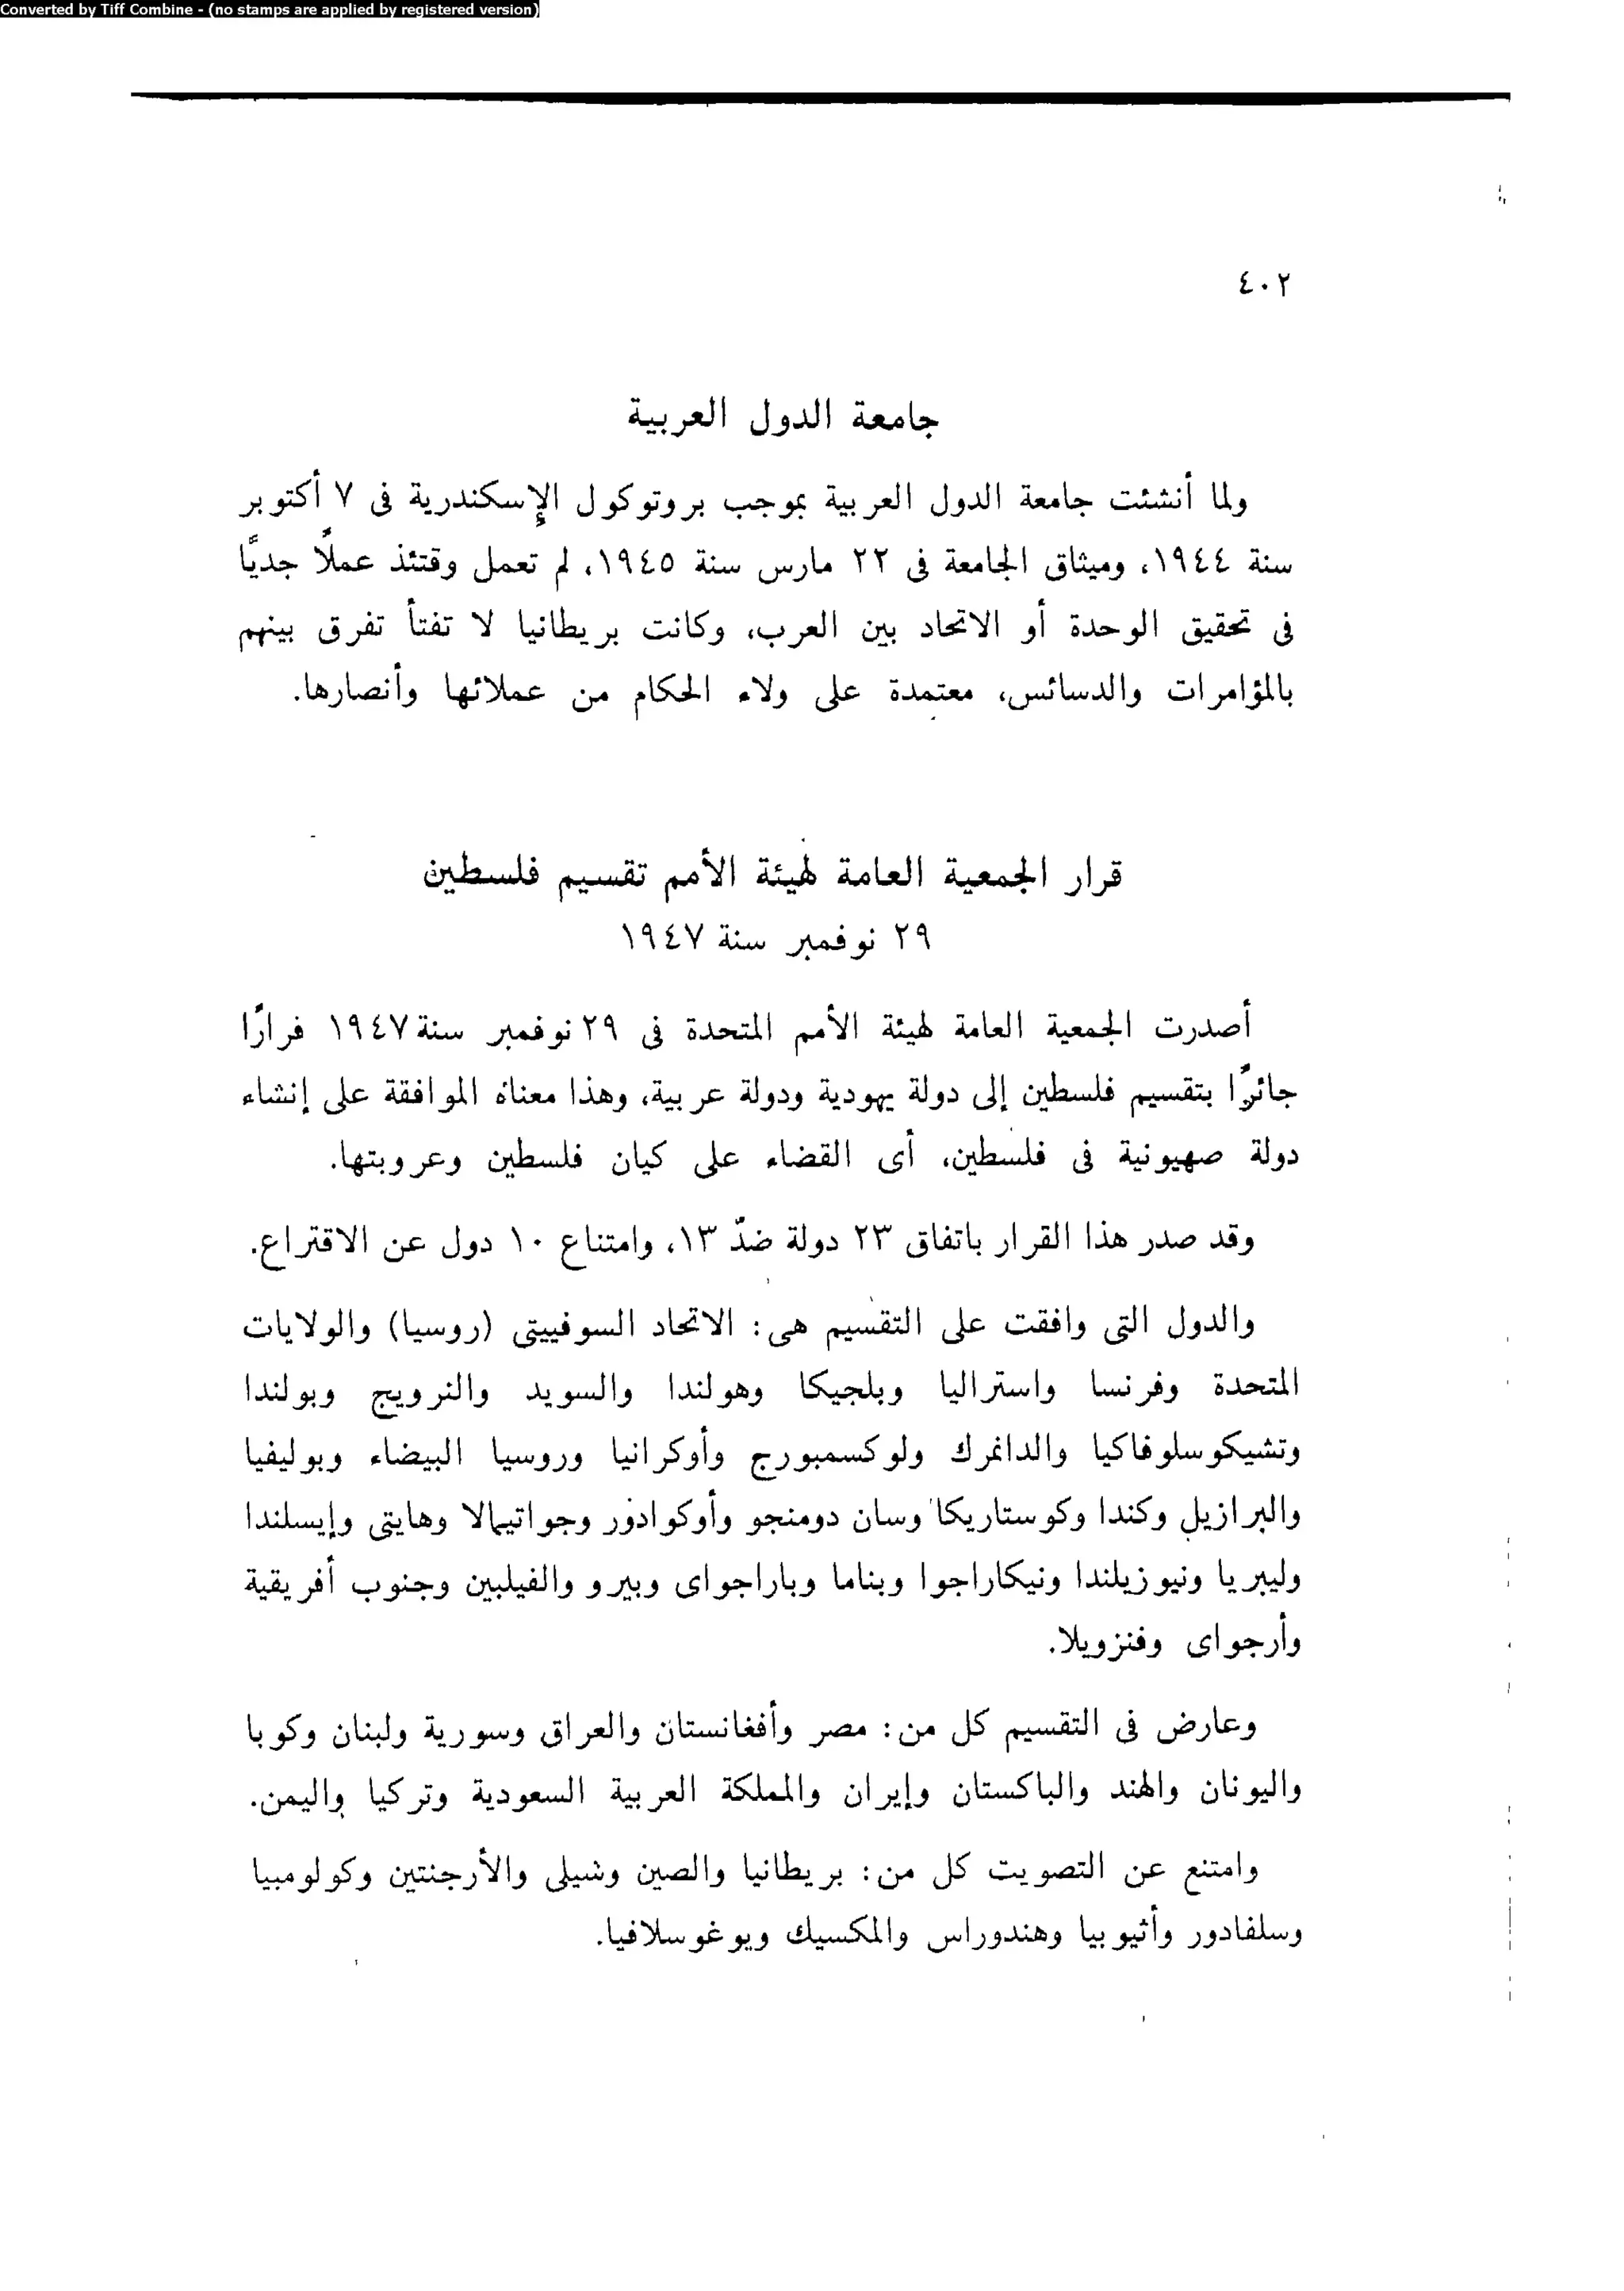 Converted by Tiff Combine - (no stamps are applied by registered version)
٤٠٢
جامعة الدول العربية
ولما أنشئت جامعة الدول العربية بموجب بروتوكول الإسكندرية فى ٧ أكتوبر
سنة ١٩٤٤، وميثاق الجامعة فى ٢٢ مارس سنة ١٩٤٥، لم تعمل وقتئذ عملاً جديًا
فى تحقيق الوحدة أو الاتحاد بين العرب، وكانت بريطانيا لا تفتأ تفرق بينهم
بالمؤامرات والدسائس، معتمدة على ولاء الحكام من عملائها وأنصارها.
قرار الجمعية العامة لهيئة الأمم تقسيم فلسطين
٢٩ نوفمبر سنة ١٩٤٧
أصدرت الجمعية العامة لهيئة الأمم المتحدة فى ٢٩ نوفمبر سنة ١٩٤٧ قرارًا
جائرًا بتقسيم فلسطين إلى دولة يهودية ودولة عربية، وهذا معناه الموافقة على إنشاء
دولة صهيونية فى فلسطين، أى القضاء على كيان فلسطين وعروبتها.
وقد صدر هذا القرار باتفاق ٢٣ دولة ضدّ ١٣، وامتناع ١٠ دول عن الاقتراع.
والدول التى وافقت على التقسيم هى: الاتحاد السوفييتى (روسيا) والولايات
المتحدة وفرنسا واستراليا وبلجيكا وهولندا والسويد والنرويج وبولندا
وتشيكوسلوفاكيا والدانمرك ولوكسمبورج وأوكرانيا وروسيا البيضاء وبوليفيا
والبرازيل وكندا وكوستاريكا وسان دومنجو وأوكوادور وجواتيمالا وهايتى وإيسلندا
وليبريا ونيوزيلندا ونيكاراجوا وبناما وباراجواى وبيرو والفيلبين وجنوب أفريقية
وأرجواى وفنزويلا.
وعارض فى التقسيم كل من: مصر وأفغانستان والعراق وسورية ولبنان وكوبا
واليونان والهند والباكستان وإيران والمملكة العربية السعودية وتركيا واليمن.
وامتنع عن التصويت كل من: بريطانيا والصين وشيلى والأرجنتين وكولومبيا
وسلفادور وأثيوبيا وهندوراس والمكسيك ويوغوسلافيا.